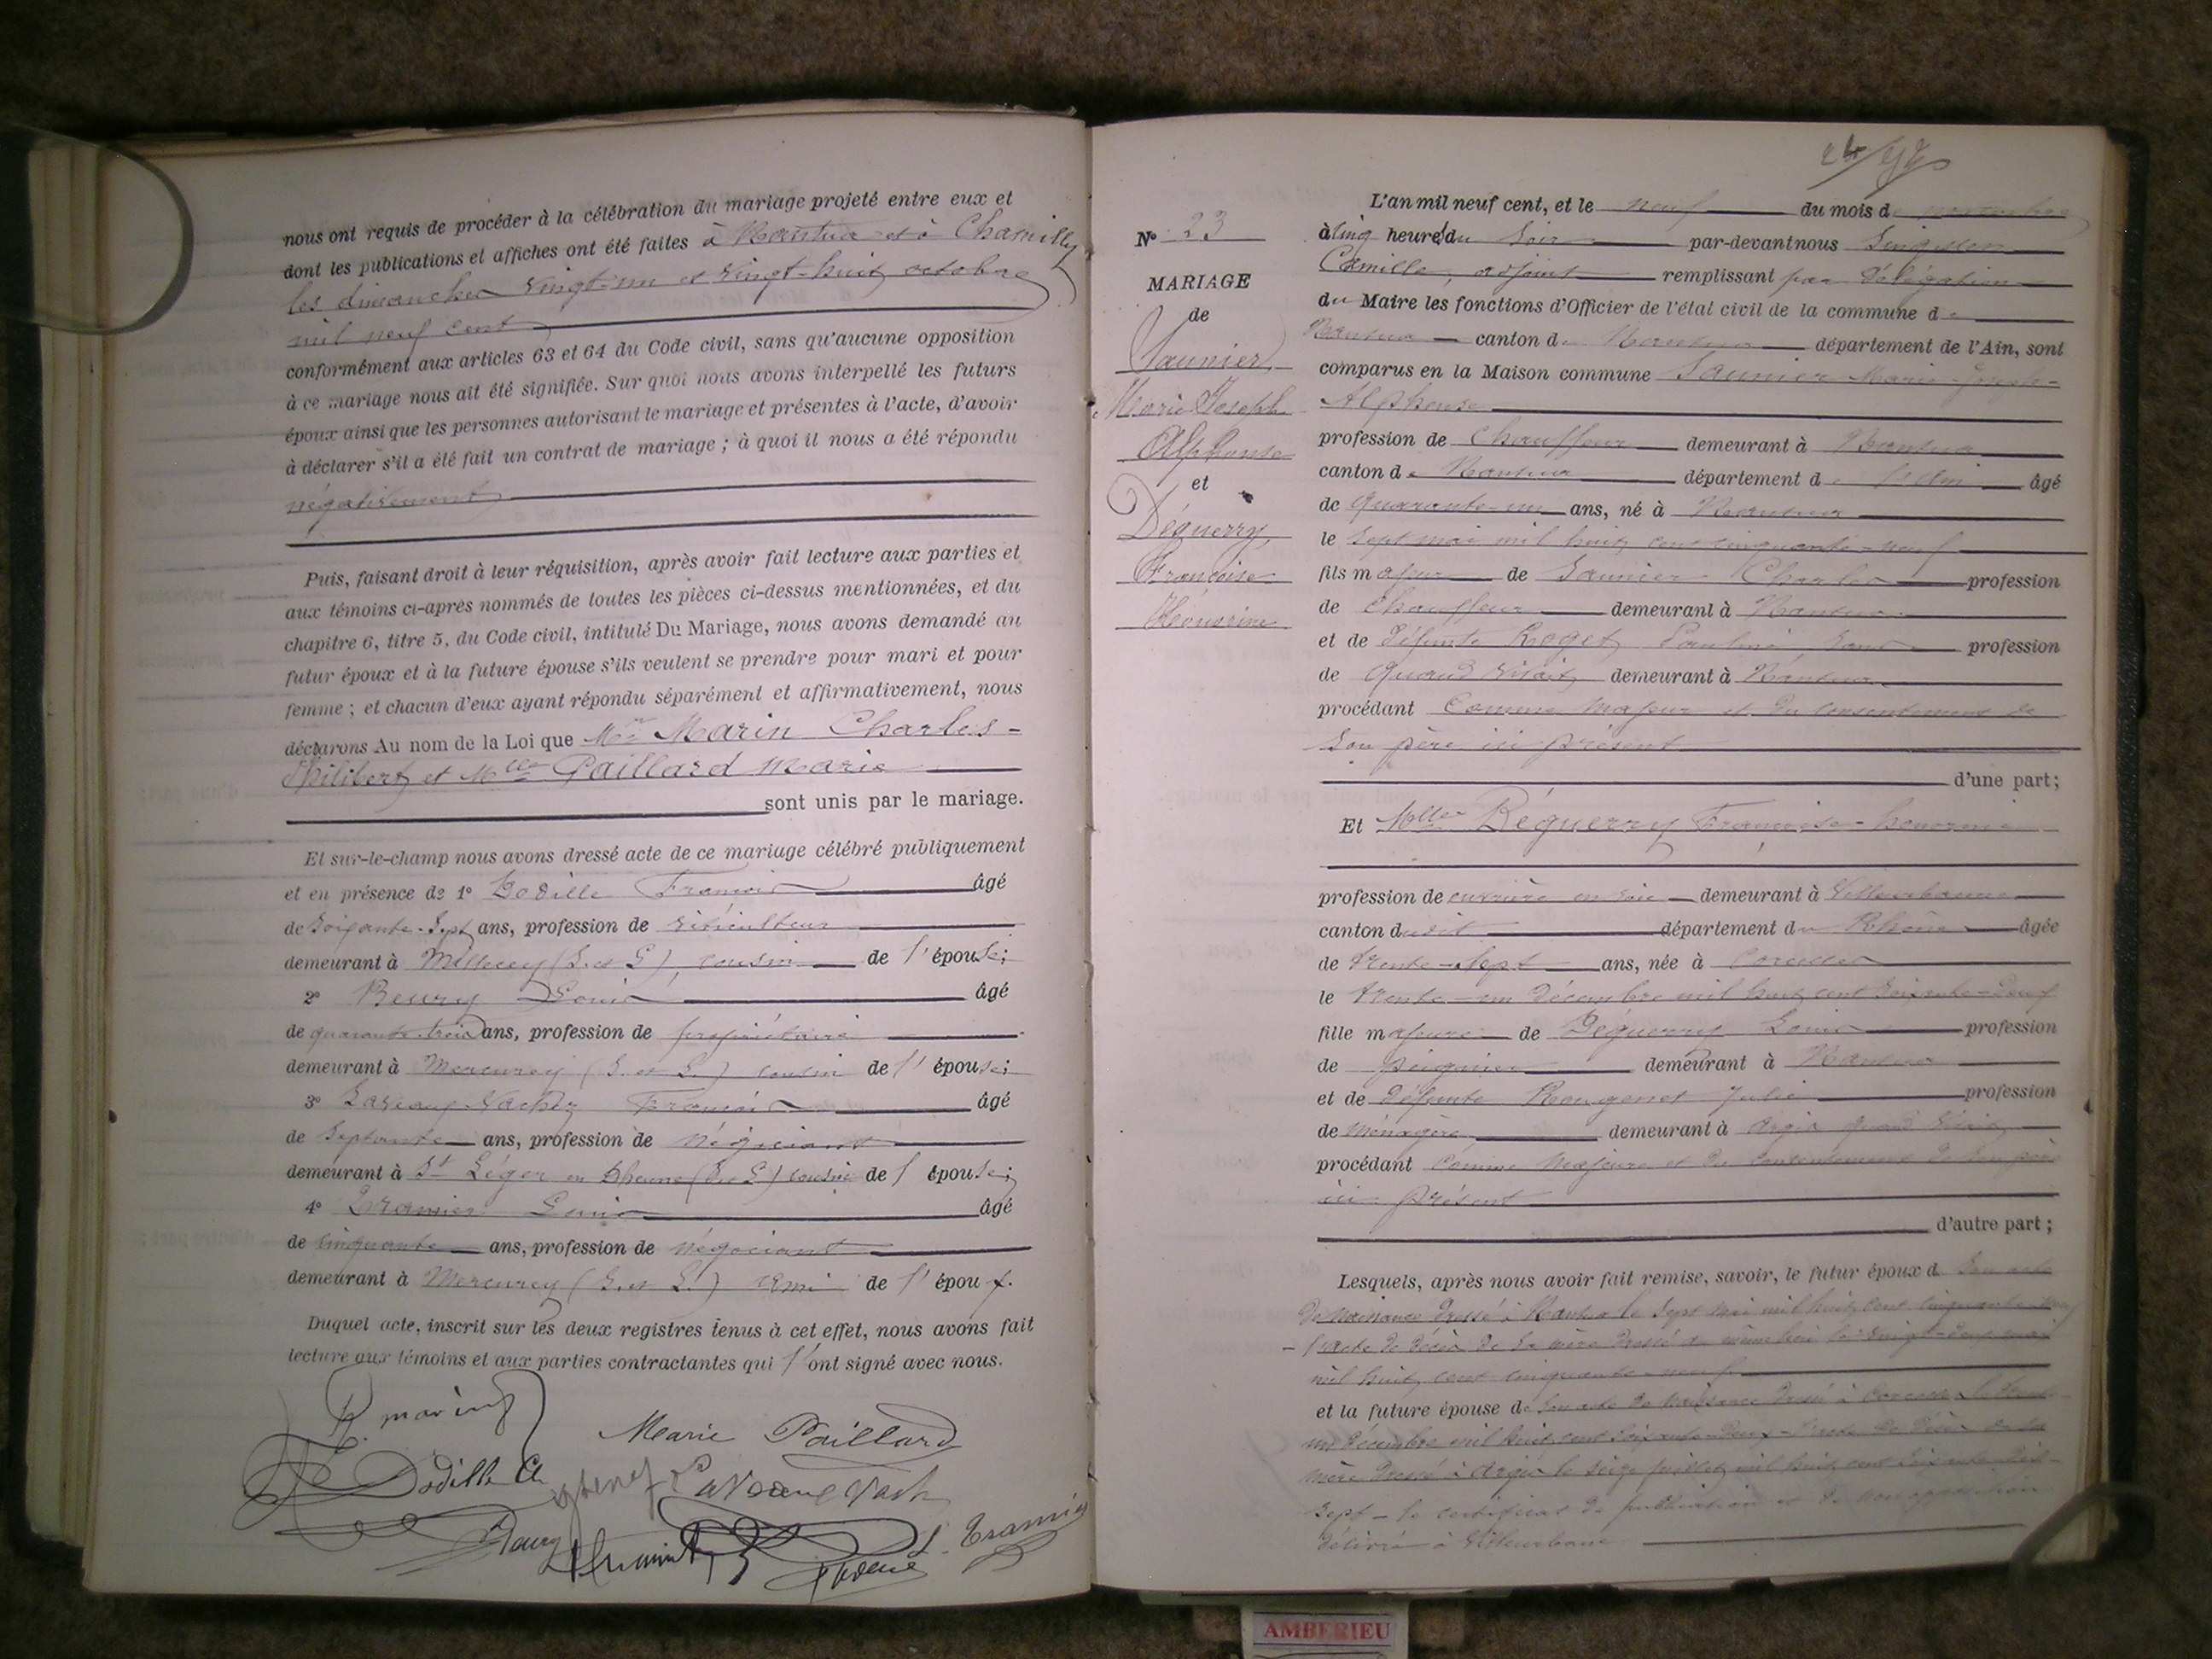 nous ont requis de procéder à la célébration du mariage projeté entre eux et
dont les publications et affiches ont été faites à Nantua et à Chamilly
les dimanches vingt-un et vingt-huit octobre
mil neuf cent
conformément aux articles 63 et 64 du Code civil, sans qu'aucune opposition
à ce mariage nous ait été signifiée. Sur quoi nous avons interpellé les futurs
époux ainsi que les personnes autorisant le mariage et présentes à l'acte, d'avoir
à déclarer s'il a été fait un contrat de mariage ; à quoi il nous a été répondu
négativement
Puis, faisant droit à leur réquisition, après avoir fait lecture aux parties et
aux témoins ci-après nommés de toutes les pièces ci-dessus mentionnées, et du
chapitre 6, titre 5, du Code civil, intitulé Du Mariage, nous avons demandé au
futur époux et à la future épouse s'ils veulent se prendre pour mari et pour
femme ; et chacun d'eux ayant répondu séparément et affirmativement, nous
déclarons Au nom de la Loi que Mr Marin Charles-
Philibert et Mlle Paillard Marie
sont unis par le mariage.
Et sur-le-champ nous avons dressé acte de ce mariage célébré publiquement
et en présence de 1° Dodille François âgé
de soixante-sept ans, profession de viticulteur
demeurant à Mellecey (S. et L.) cousin de l'épouse;
2° Beury Louis âgé
de quarante-trois ans, profession de propriétaire
demeurant à Mercurey (S. et L.) cousin de l'épouse;
3° Laveaux-Vacher François âgé
de septante ans, profession de négociant
demeurant à St Léger sur Dheune (S. et L) cousin de l'épouse;
4° Tramier Louis âgé
de cinquante ans, profession de négociant
demeurant à Mercurey (S. et L.) ami de l'époux.
Duquel acte, inscrit sur les deux registres tenus à cet effet, nous avons fait
lecture aux témoins et aux parties contractantes qui l'ont signé avec nous.
marin
Marie Paillard
Dodille
L. Tramier
N° 23
MARIAGE
de
Saunier
Marie Joseph
Alphonse
et
Déguerry
Françoise
L'an mil neuf cent, et le neuf du mois de novembre
à cinq heures du soir par-devant nous
Camille, adjoint remplissant par délégation
du Maire les fonctions d'Officier de l'état civil de la commune de
Nantua canton de Nantua département de l'Ain, sont
comparus en la Maison commune Saunier Marie-Joseph-
Alphonse
profession de chauffeur demeurant à Nantua
canton de Nantua département de l'Ain âgé
de quarante-un ans, né à Nantua
le sept mai mil huit cent cinquante-neuf
fils majeur de Saunier Charles profession
de chauffeur demeurant à Nantua
et de défunte Roget Pauline, sans profession
de quand vivait demeurant à Nantua
procédant comme majeur et du consentement de
son père ici présent
d'une part;
Et Mlle Déguerry Françoise
profession de ouvrière en soie demeurant à Villeurbanne
canton dudit département du Rhône âgée
de trente-sept ans, née à Corcelles
le trente-un décembre mil huit cent soixante-deux
fille majeure de Déguerry Louis profession
de peignier demeurant à Nantua
et de défunte Rougemot Julie profession
de ménagère demeurant à Argis quand vivait
procédant comme majeure et du consentement de son père
ici présent
d'autre part ;
Lesquels, après nous avoir fait remise, savoir, le futur époux de son acte
de naissance dressé à Nantua le sept mai mil huit cent cinquante-neuf
- l'acte de décès de sa mère dressé au même lieu le vingt-deux mai
mil huit cent cinquante-neuf
et la future épouse de son acte de naissance dressé à Corcelles le trente
un décembre mil huit cent soixante-deux - l'acte de décès de sa
mère dressé à Argis le seize juillet mil huit cent soixante-dix-
sept - le certificat de publication et de non opposition
délivré à Villeurbanne
AMBERIEU